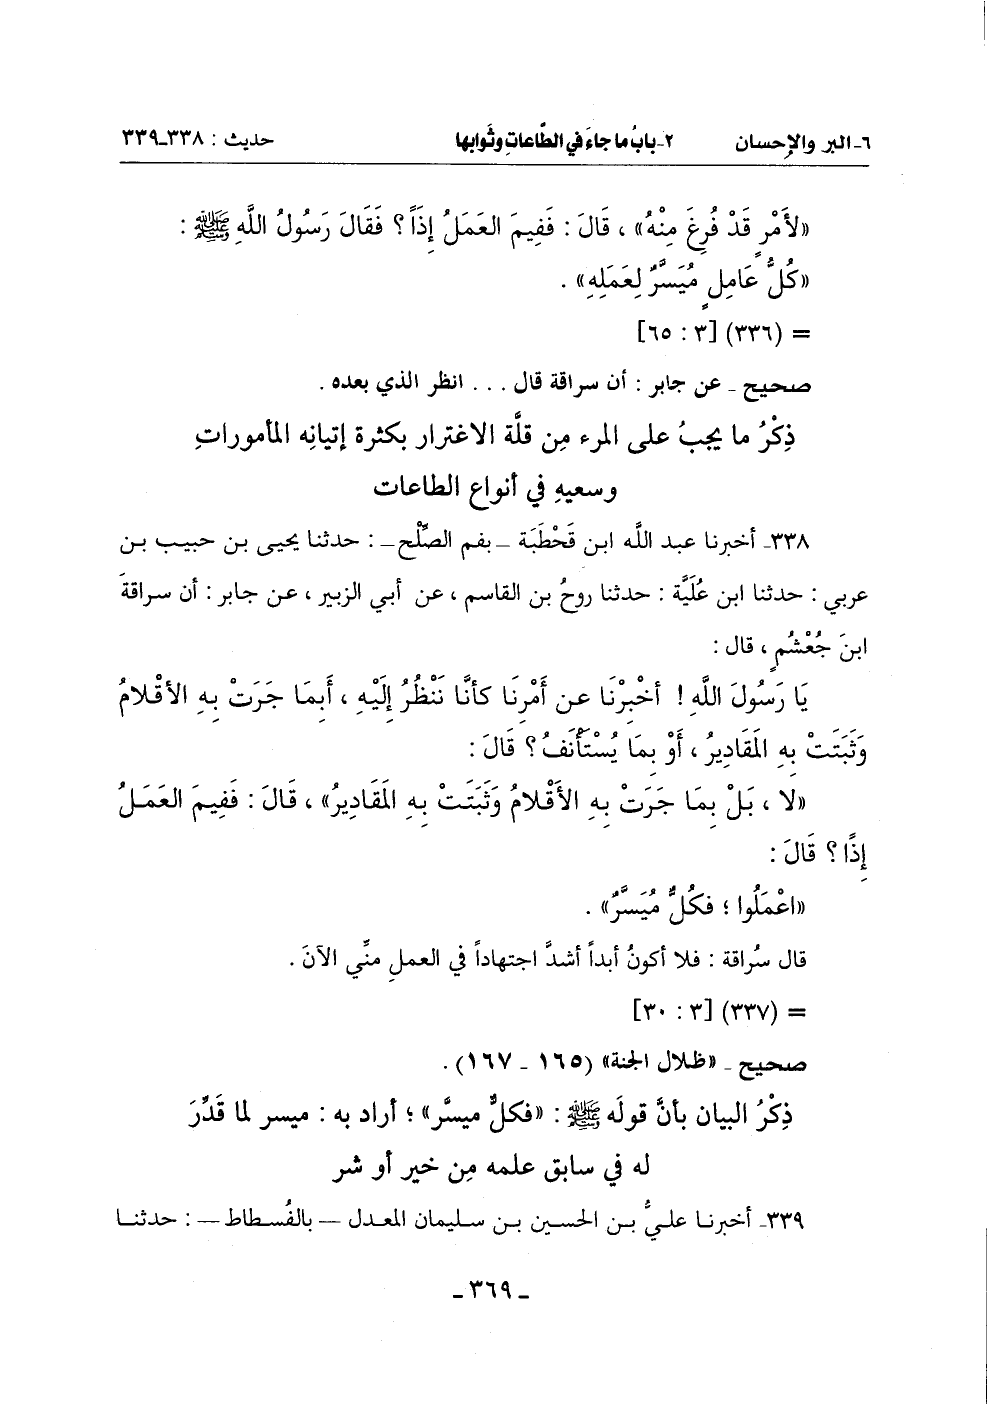 ٦ـ البر والإحسان ٢ـ بابُ ما جاءَ في الطَّاعاتِ وثَوابها حديث : ٣٣٨ـ٣٣٩
«لأَمْرٍ قَدْ فُرِغَ مِنْهُ» ، قَالَ : فَفِيمَ العَمَلُ إِذَاً ؟ فَقَالَ رَسُولُ اللَّهِ ﷺ :
«كُلُّ عَامِلٍ مُيَسَّرٌ لِعَمَلِهِ» .
= (٣٣٦) [٣ : ٦٥]
صحيح ـ عن جابر : أن سراقة قال . . . انظر الذي بعده .
ذِكْرُ ما يجبُ على المرء مِن قلَّة الاغترار بكثرة إتيانِه المأموراتِ
وسعيهِ في أنواع الطاعات
٣٣٨ـ أخبرنا عبد اللَّه ابن قَحْطَبَة ـ بفم الصِّلْح ـ : حدثنا يحيى بن حبيب بن
عربي : حدثنا ابن عُلَيَّة : حدثنا روحُ بن القاسم ، عن أبي الزبير ، عن جابر : أن سراقةَ
ابنَ جُعْشُمٍ ، قال :
يَا رَسُولَ اللَّهِ ! أخْبِرْنَا عن أمْرِنَا كأنَّا نَنْظُرُ إلَيْهِ ، أَبِمَا جَرَتْ بِهِ الأقْلامُ
وَثَبَتَتْ بِهِ المَقَادِيرُ ، أَوْ بِمَا يُسْتَأنَفُ ؟ قَالَ :
«لا ، بَلْ بِمَا جَرَتْ بِهِ الأَقْلامُ وَثَبَتَتْ بِهِ المَقَادِيرُ» ، قَالَ : فَفِيمَ العَمَلُ
إِذًا ؟ قَالَ :
«اعْمَلُوا ؛ فكُلٌّ مُيَسَّرٌ» .
قال سُراقة : فلا أكونُ أبداً أشدَّ اجتهاداً في العملِ منِّي الآنَ .
= (٣٣٧) [٣ : ٣٠]
صحيح ـ «ظلال الجنة» (١٦٥ ـ ١٦٧) .
ذِكْرُ البيان بأنَّ قولَه ﷺ : «فكلٌّ ميسَّر» ؛ أراد به : ميسر لما قَدِّرَ
له في سابق علمه مِن خير أو شر
٣٣٩ـ أخبرنا عليُّ بن الحسين بن سليمان المعدل ـ بالفُسطاط ـ : حدثنا
ـ ٣٦٩ ـ